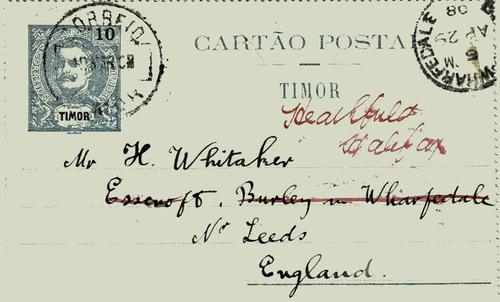 CORREIO
10
CARTÃO POSTAL
WHARFEDALE
AP 29
08
TIMOR
TIMOR
Heathfield
Halifax
Mr H. Whitaker
Esscroft, Burley in Wharfedale
Nr Leeds
England.